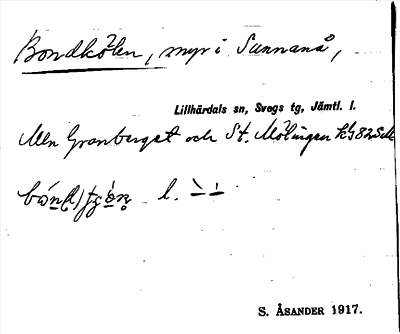 Bondkölen, myr i Sunnanå,
Lillhärdals sn, Svegs tg, Jämtl. l.
Mln Granberget och St. Mölingen KG 82
l.
S. ÅSANDER 1917.